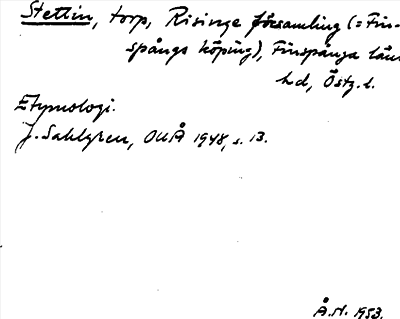 Stettin, torp, Risinge församling (= Fin-
spångs köping), Finspånga län
hd, Östg. l.
Etymologi.
J. Sahlgren, OUÅ 1948, s. 13.
Å.N. 1953.